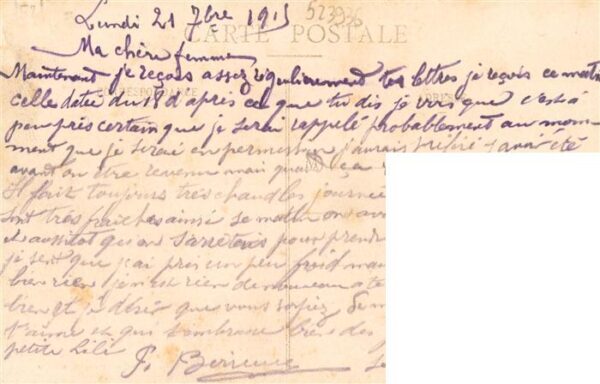 Lundi 21 7bre 1915
523936
CARTE POSTALE
Ma chère femme
Maintenant je reçois assez régulièrement tes lettres je reçois ce matin
CORRESPONDANCE
celle datée du 18 d'après ce que tu dis je vois que c'est à
peu près certain que je serai rappelé probablement au mom
ment que je serai en permission j'aurais préféré
avant ou être revenu mais quand ça
Il fait toujours très chaud les journées
sont très fraîches ainsi ce matin on av
et aussitôt qu'on s'arrêtais pour prend
je sent que j'ai pris un peu froid mai
bien rien je n'est rien de nouveau a te
bien et je désir que vous soyez de m
t'aime et qui t'embrasse bien des
petite Lili